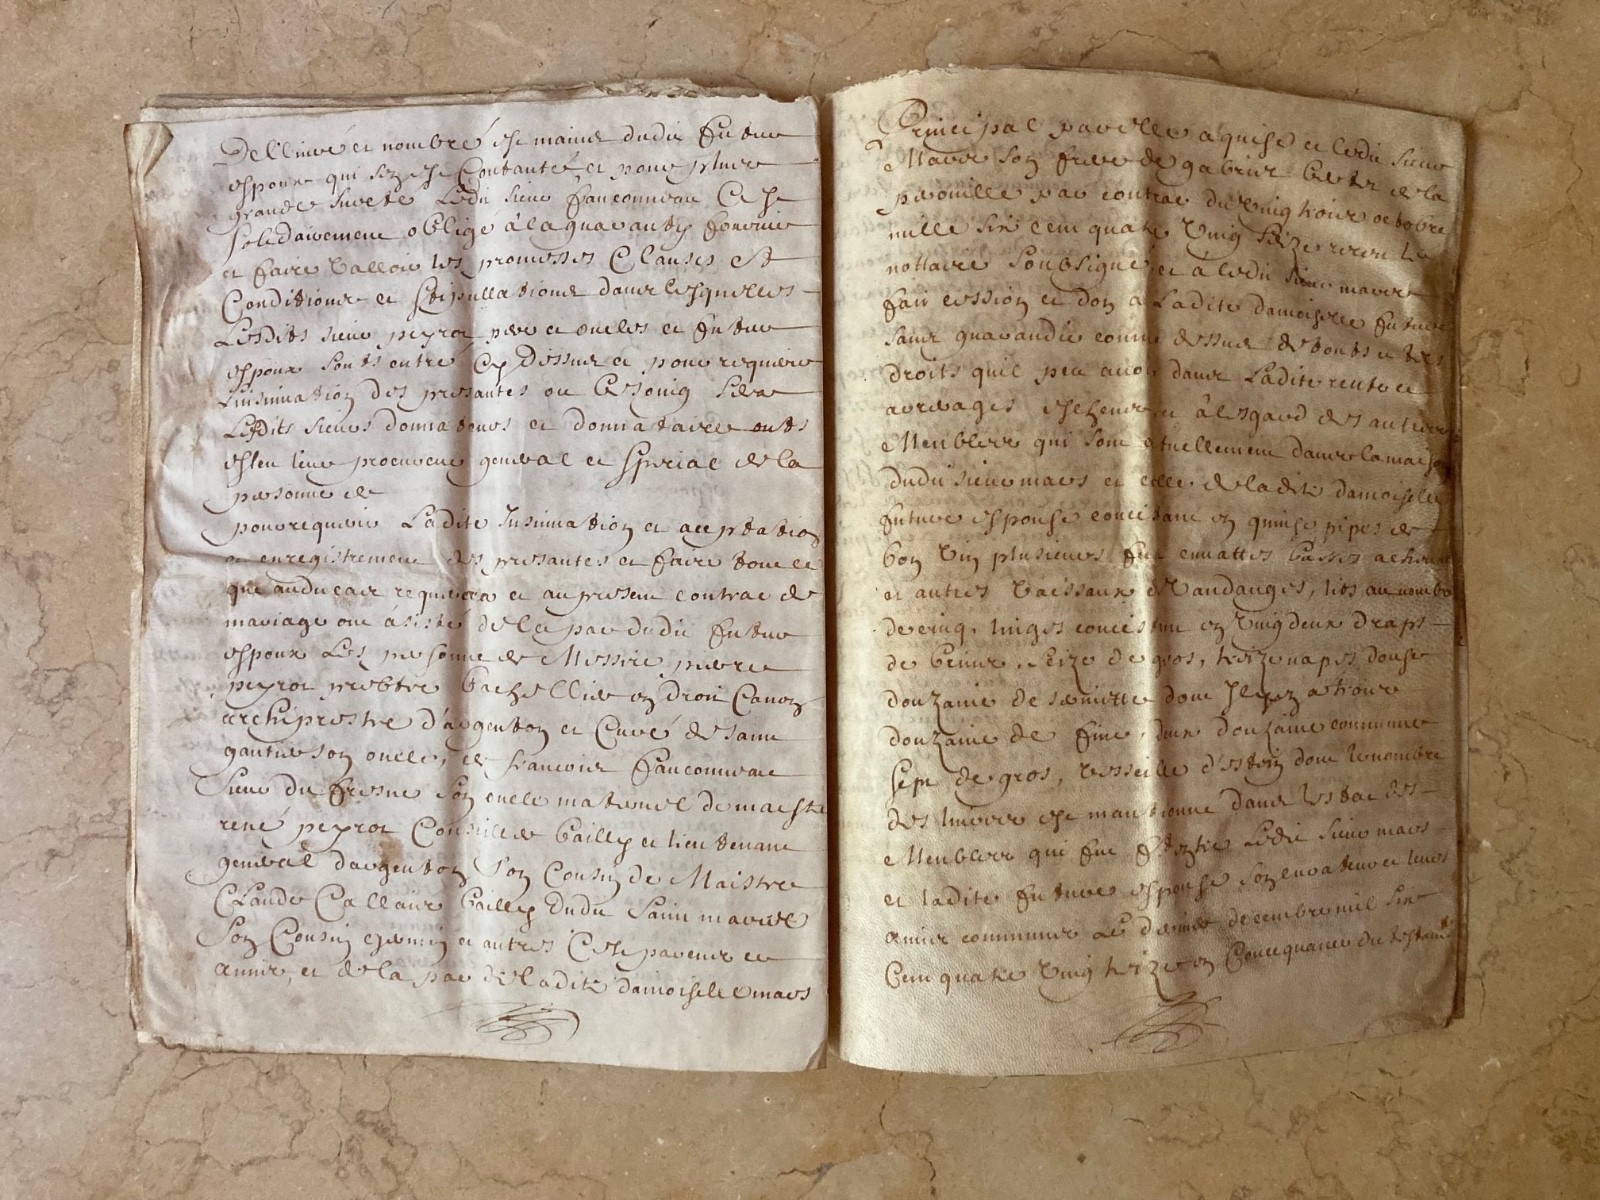 Dellivré et nombré es mains dudit futur
espoux qui sen est Contanté, et pour plus
grande sureté Ledit sieur fauconneau Cest
solidairement obligé a la guarantÿ fournir
et faire valloir les promesses Clauses Et
Conditions et stipullations dans lesquelles
Lesdits sieur peyrot pere et oncles et futur
espoux sonts entré Cy dessus et pour requerir
Linsinuation des presantes ou besoing sera
Lesdits sieurs donnateurs et donnataire onts
esleu leur procureur general et special de la
personne de
pour requerir Ladite Insinuation et acceptation
et enregistrement des presantes et faire tout ce
que audit cas requerera et au present contrac de
mariage ont assisté de la par dudit futur
espoux Les personne de Messire pierre
peyrot prebtre bachellier en droit Canon
archiprestre d'argenton et Curé de saint
gautier son oncle, et francois fauconneau
Sieur du fresne son oncle maternel de maistre
rené peyrot Conseiller bailly et lieutenant
general dargenton son Cousin de Maistre
Claude Callaux bailly dudit saint marcel
Son Cousin germain et autres Ces parens et
amis, et de la par de ladite damoiselle mars
Principal par elle aquise et ledit sieur
Mars son frere de gabriel de la
prouille par contrac du vingt trois octobre
mille six cent quatre vingt seize receu Le
nottaire soubsigné et a ledit sieur mars
fait cession et don a Ladite damoiselle future
sans guarandie comme dessus de touts et tels
droits quil peu avoir dans Ladite rente et
arrerages eschus et a lesgard des autres
Meubles qui sont actuellement dans la maison
dudit sieur mars et celle de ladite damoiselle
future espouse concistant en quinse pipes de
bon vin plusieurs
et autres vaisseaux de vandanges, lits au nombre
de cinq, linges concistant en vingt deux draps
de brin, seize de gros, treize napes douse
douzaine de serviette dont Il y en a trois
douzaine de fine, deux douzaine commune
sept de gros, vesselle d'estain dont le nombre
des livres est mantionné dans lestat des
Meubles qui fut ledit sieur mars
et ladite future espouse son curateur et leurs
amis communs Le decembre mil six
Cent quatre vingt treize en Concequance du testament